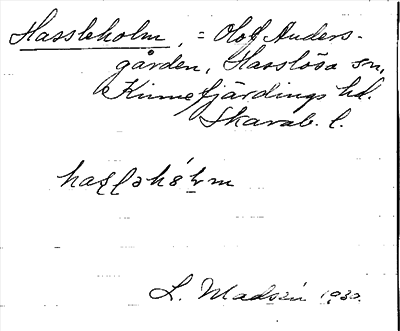 Hassleholm, = Olof Anders-
gården, Hasslösa sn,
Kinnefjärdings hd.
Skarab. l.
L. Madsén 1930.